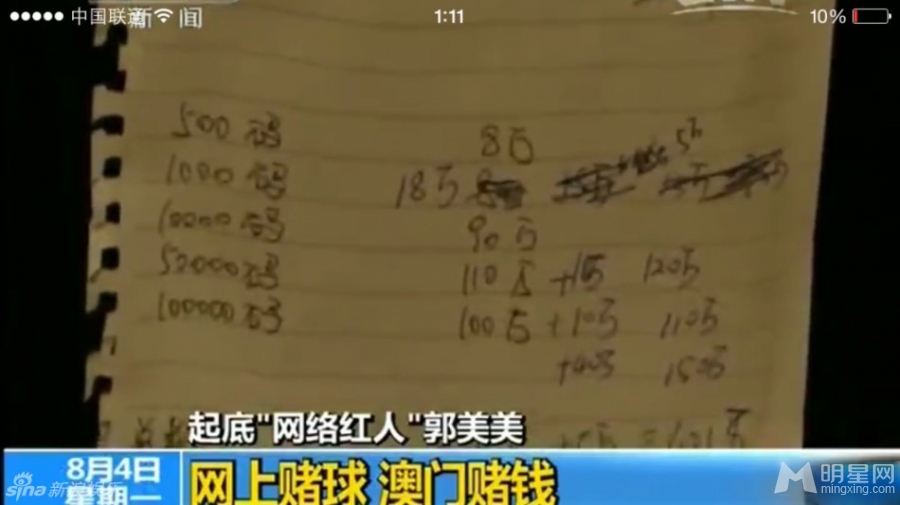 中国联通 新闻 1:11 10%
500码 8万
5万
1000码 18万
10000码 90万
50000码 110万 +1万 120万
100000码 100万 +10万 110万
+40万 150万
起底"网络红人"郭美美
8月4日
星期一
网上赌球 澳门赌钱
sina新浪娱乐
明星网
mingxing.com